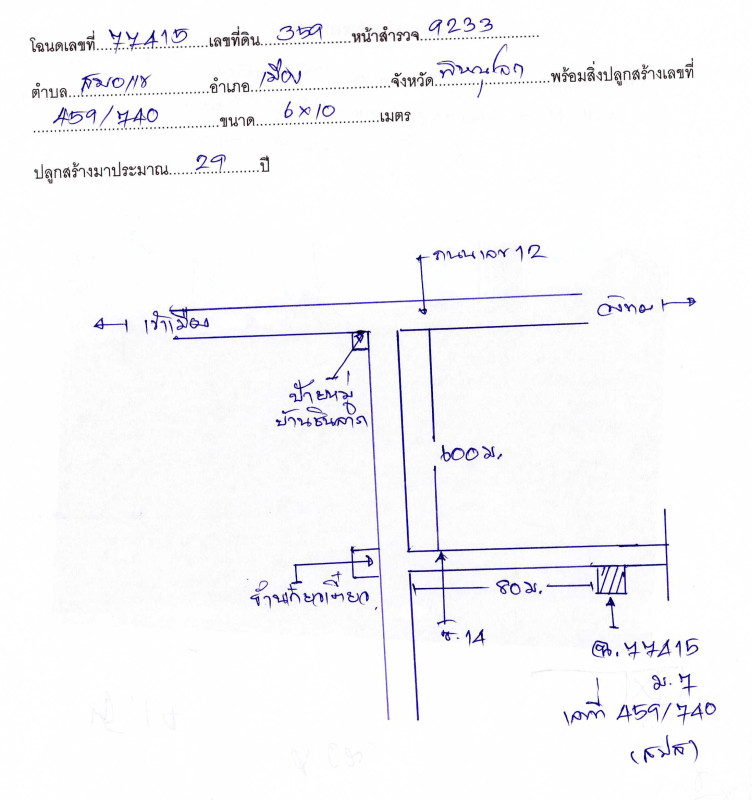 โฉนดเลขที่ 77415 เลขที่ดิน 359 หน้าสำรวจ 9233
ตำบล สมอแข อำเภอ เมือง จังหวัด พิษณุโลก พร้อมสิ่งปลูกสร้างเลขที่
459/740 ขนาด 6x10 เมตร
ปลูกสร้างมาประมาณ 29 ปี
ถนนเลข 12
เข้าเมือง
วังทอง
ป้ายหมู่
บ้านชินลาภ
600 ม.
ร้านก๋วยเตี๋ยว
80 ม.
ซ.14
ฉ. 77415
ม.7
เลขที่ 459/740